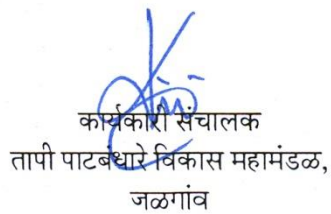 कार्यकारी संचालक
तापी पाटबंधारे विकास महामंडळ,
जळगांव